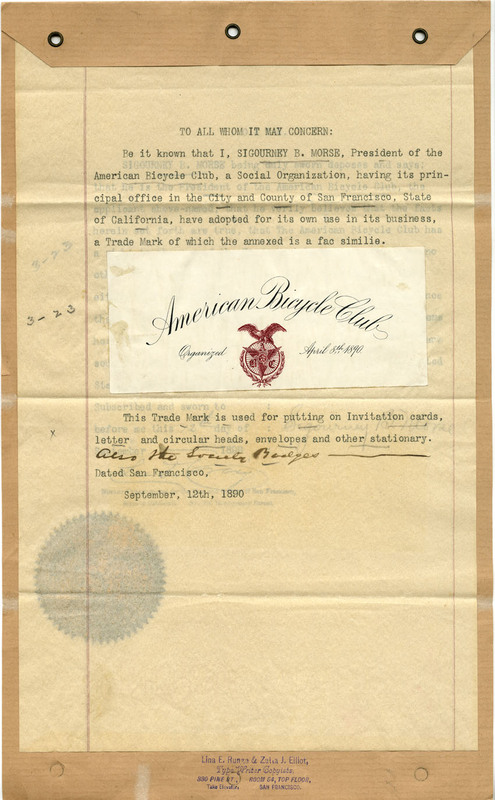 TO ALL WHOM IT MAY CONCERN:
Be it known that I, SIGOURNEY B. MORSE, President of the
American Bicycle Club, a Social Organization, having its prin-
cipal office in the City and County of San Francisco, State
of California, have adopted for its own use in its business,
a Trade Mark of which the annexed is a fac similie.
3-23
3-23
American Bicycle Club
Organized April 8th 1890.
This Trade Mark is used for putting on Invitation cards,
x
letter and circular heads, envelopes and other stationary.
Also the Society Badges
Dated San Francisco,
September, 12th, 1890
Subscribed and sworn to
before me this day of
Lina E. & Zella J. Elliot,
Type Writer Copyists.
330 PINE ST., ROOM 64, TOP FLOOR,
Take Elevator, SAN FRANCISCO.